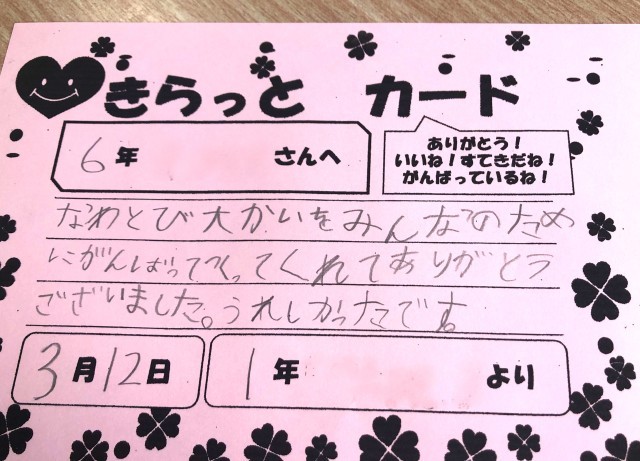 きらっと カード
6年 さんへ
ありがとう!
いいね!すてきだね!
がんばっているね!
なわとび大かいをみんなのため
にがんばってつくってくれてありがとう
ございました。うれしかったです。
3月12日
1年 より